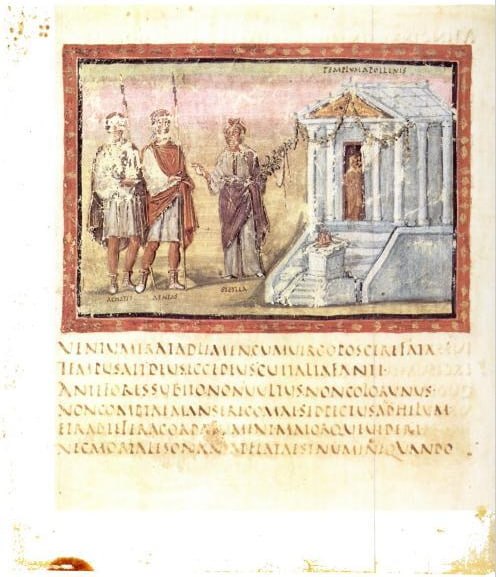 TEMPLUMAPOLLINIS
ACHATES AENEAS SIBYLLA
UENTUMERATADLIMENCUMUIRGOPOSCEREFATA
TEMPUSAITDEUSECCEDEUSCUITALIAFANTI
ANTEFORESSUBITONONUULTUSNONCOLORUNUS
NONCOMPTAEMANSERECOMAESEDPECTUSANHELUM
ETRABIEFERACORDATUMENTMAIORQUEUIDERI
NECMORTALESONANSADFLATAESTNUMINEQUANDO